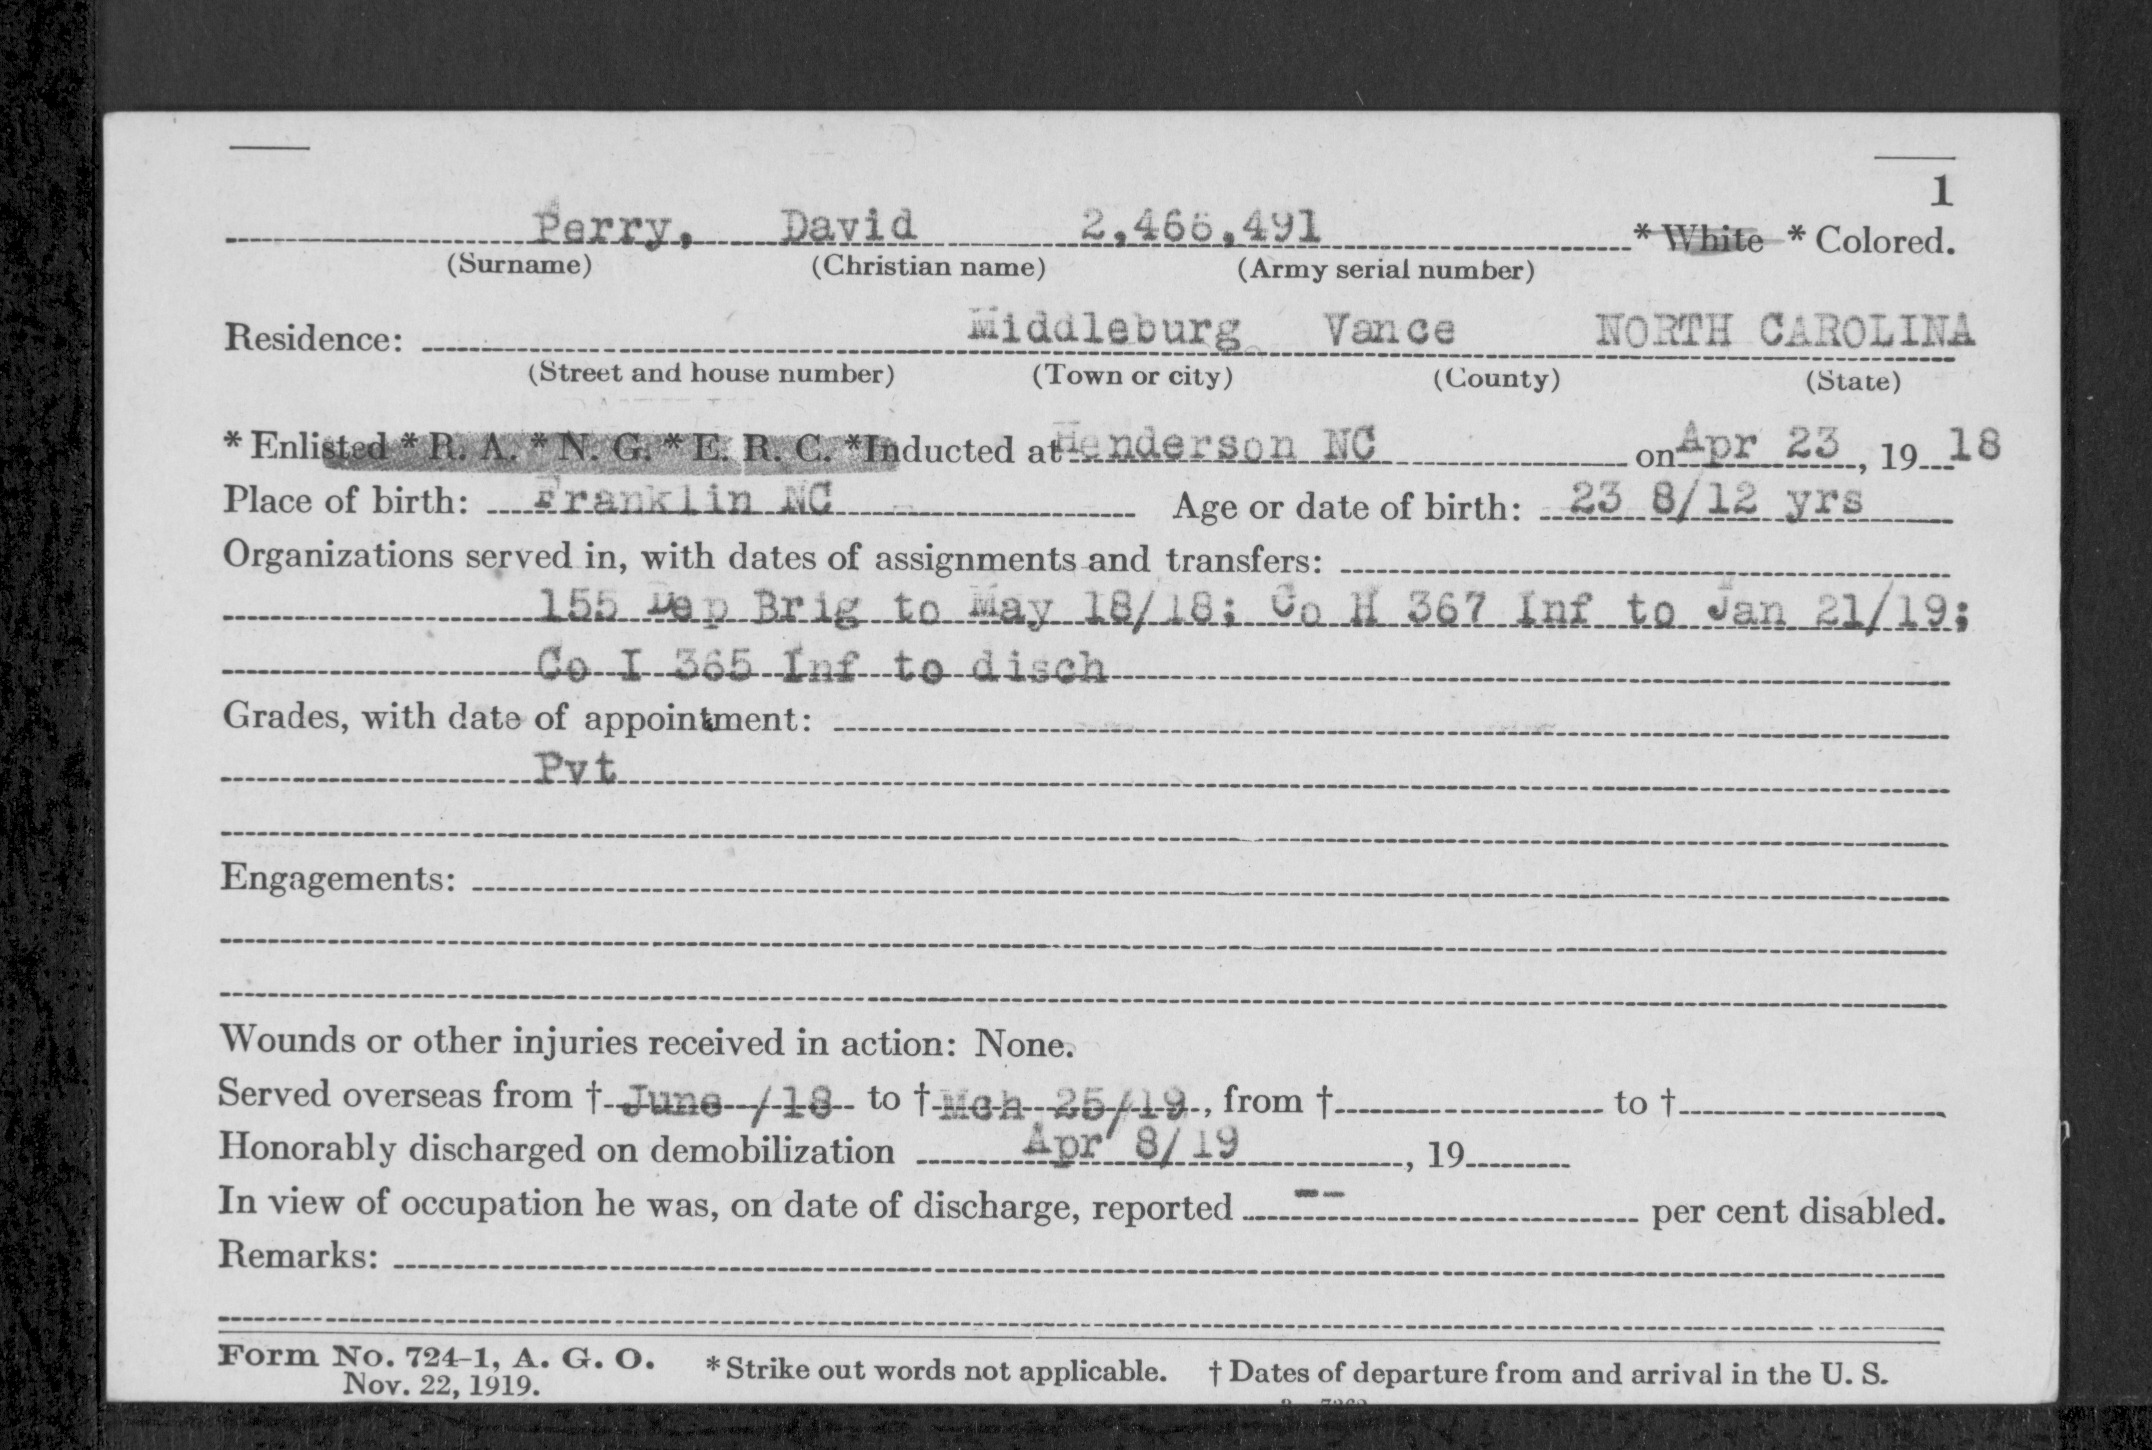 1
Perry, David 2,466,491 * White * Colored.
(Surname) (Christian name) (Army serial number)
Residence: Middleburg Vance NORTH CAROLINA
(Street and house number) (Town or city) (County) (State)
* Enlisted * R. A. * N. G. * E. R. C. *Inducted at Henderson NC on Apr 23, 19 18
Place of birth: Franklin NC Age or date of birth: 23 8/12 yrs
Organizations served in, with dates of assignments and transfers:
155 Dep Brig to May 18/18; Co H 367 Inf to Jan 21/19;
Co I 365 Inf to disch
Grades, with date of appointment:
Pvt
Engagements:
Wounds or other injuries received in action: None.
Served overseas from † June /18 to † Mch 25/19, from † to †
Honorably discharged on demobilization Apr 8/19, 19
In view of occupation he was, on date of discharge, reported -- per cent disabled.
Remarks:
Form No. 724-1, A. G. O. * Strike out words not applicable. † Dates of departure from and arrival in the U. S.
Nov. 22, 1919.